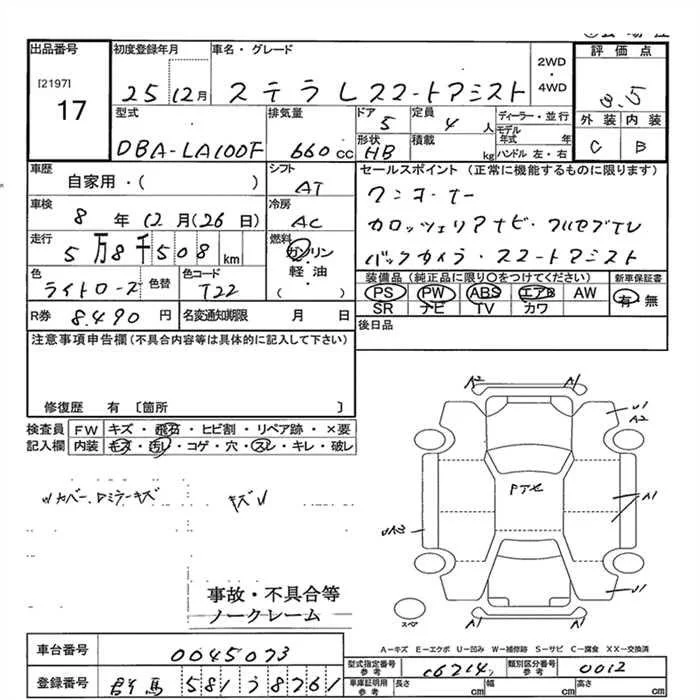 出品番号
[2197]
17
初度登録年月
25 12月
車名・グレード
ステラ Lスマートアシスト
2WD
・
4WD
評価点
3.5
外装 内装
C B
型式
DBA-LA100F
排気量
660cc
ドア
5
定員
4人
形状
HB
積載
kg
ディーラー・並行
モデル
年式 年
ハンドル 左・右
車歴
自家用・( )
シフト
AT
車検
8年12月(26日)
冷房
AC
走行
5万8千508km
燃料
ガソリン
・
軽油・
( )
色
ライトローズ
色替
色コード
T22
R券
8,490円
名変通知期限 月 日
セールスポイント(正常に機能するものに限ります)
ワンオーナー
カロッツェリアナビ・フルセグTV
バックカメラ・スマートアシスト
装備品(純正品に限り○をつけてください)
新車保証書
PS PW ABS エアB AW
SR ナビ TV カワ
有・無
後日品
注意事項申告欄(不具合内容等は具体的に記入して下さい)
修復歴 有 〔箇所 〕
検査員
記入欄
FW キズ・飛石・ヒビ割・リペア跡・×要
内装 キズ・汚レ・コゲ・穴・スレ・キレ・破レ
キズU
事故・不具合等
ノークレーム
A2
A1
U1
A2
A1
U1
A1
A1
スペ
A-キズ E-エクボ U-凹み W-補修跡 S-サビ C-腐食 XX-交換済
車台番号
0045073
登録番号
群馬 581
型式指定番号
参考
類別区分番号
参考
0012
車庫証明用
参考
長さ cm
幅 cm
高さ cm